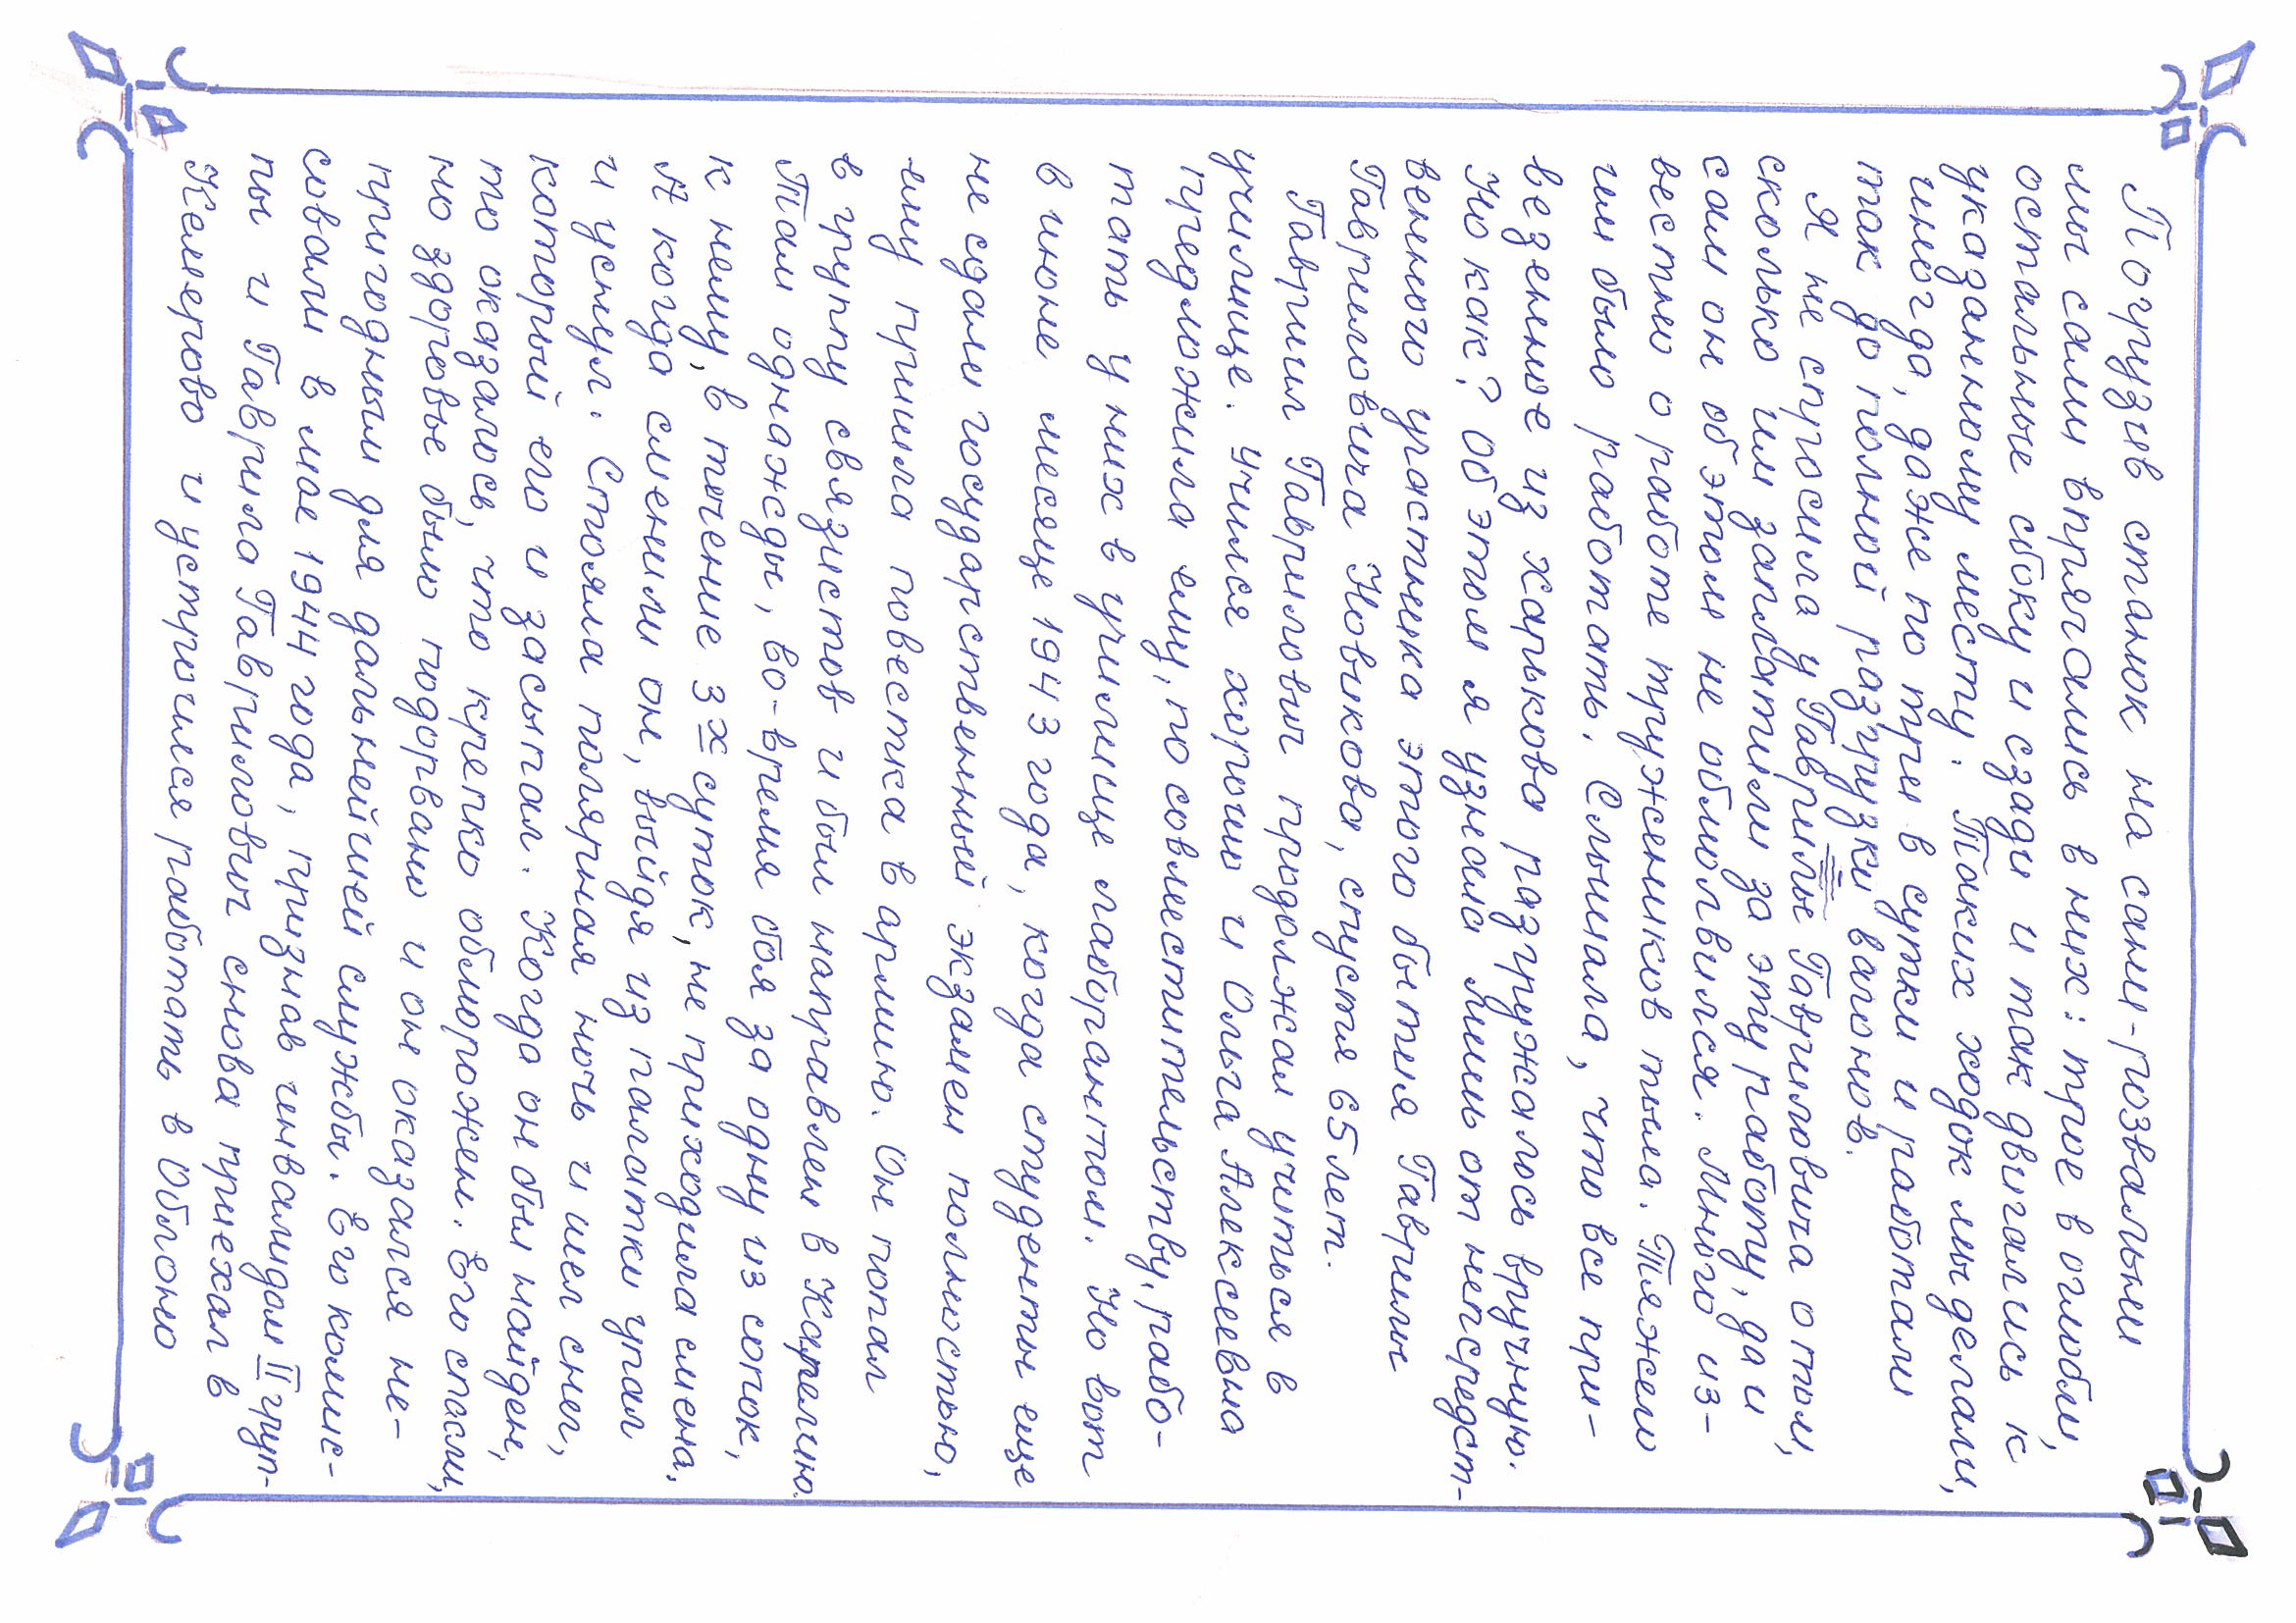 Погрузив станок на сани-розвальни
мы сами впрягались в них: трое в оглобли,
остальные сбоку и сзади и так двигались к
указанному месту. Таких ходок мы делали,
иногда, даже по три в сутки и работали
так до полной разгрузки вагонов.
Я не спросила у Гаврилы Гавриловича о том,
сколько им заплатили за эту работу, да и
сам он об этом не обмолвился. Много из-
вестно о работе тружеников тыла. Тяжело
им было работать. Слышала, что все при-
везенное из Харькова разгружалось вручную.
Но как? Об этом я узнала лишь от непосредст-
венного участника этого бытия Гаврилы
Гавриловича Новикова, спустя 65 лет.
Гаврил Гаврилович продолжал учиться в
училище. Учился хорошо и Ольга Алексеевна
предложила ему, по совместительству, рабо-
тать у них в училище лаборантом. Но вот
в июне месяце 1943 года, когда студенты еще
не сдали государственный экзамен полностью,
ему пришла повестка в армию. Он попал
в группу связистов и был направлен в Карелию.
Там однажды, во-время боя за одну из сопок,
к нему, в течение 3х суток, не приходила смена.
А когда сменили он, выйдя из палатки упал
и уснул. Стояла полярная ночь и шел снег,
который его и засыпал. Когда он был найден,
то оказалось, что крепко обморожен. Его спасли,
но здоровье было подорвано и он оказался не-
пригодным для дальнейшей службы. Его комис-
совали в мае 1944 года, признав инвалидом II груп-
пы и Гаврила Гаврилович снова приехал в
Кемерово и устроился работать в Облоно